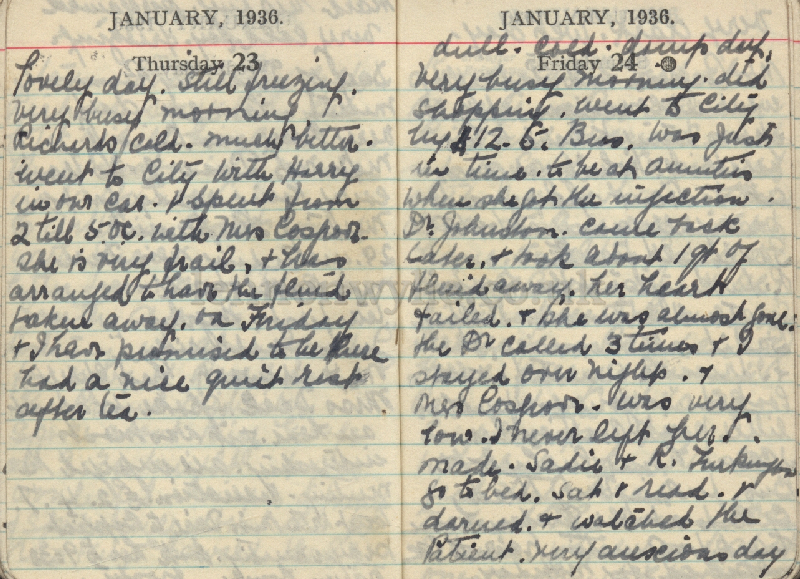 JANUARY, 1936.
Thursday 23
Lovely day. Still freezing.
very busy morning.
Richards cold. much better.
went to City with Harry
in our car. & spent from
2 till 5 oc. with Mrs Cospror.
she is very frail, & has
arranged to have the fluid
taken away. on Friday
& I have promised to be there
had a nice quiet rest
after tea.
JANUARY, 1936.
Friday 24
dull. Cold. damp day.
very busy morning. did
shopping. went to City
by 12.5. Bus. was just
in time. to be at Aunties
when she got the injection.
Dr. Johnston. came back
later, & took about 1 qt of
fluid away. her heart
failed. & she was almost gone.
the Dr called 3 times & I
stayed over night. &
Mrs Cospror. was very
low. I never left her.
made. Sadie & R. Turkington
go to bed. sat & read. &
darned. & watched the
Patient. very anxious day